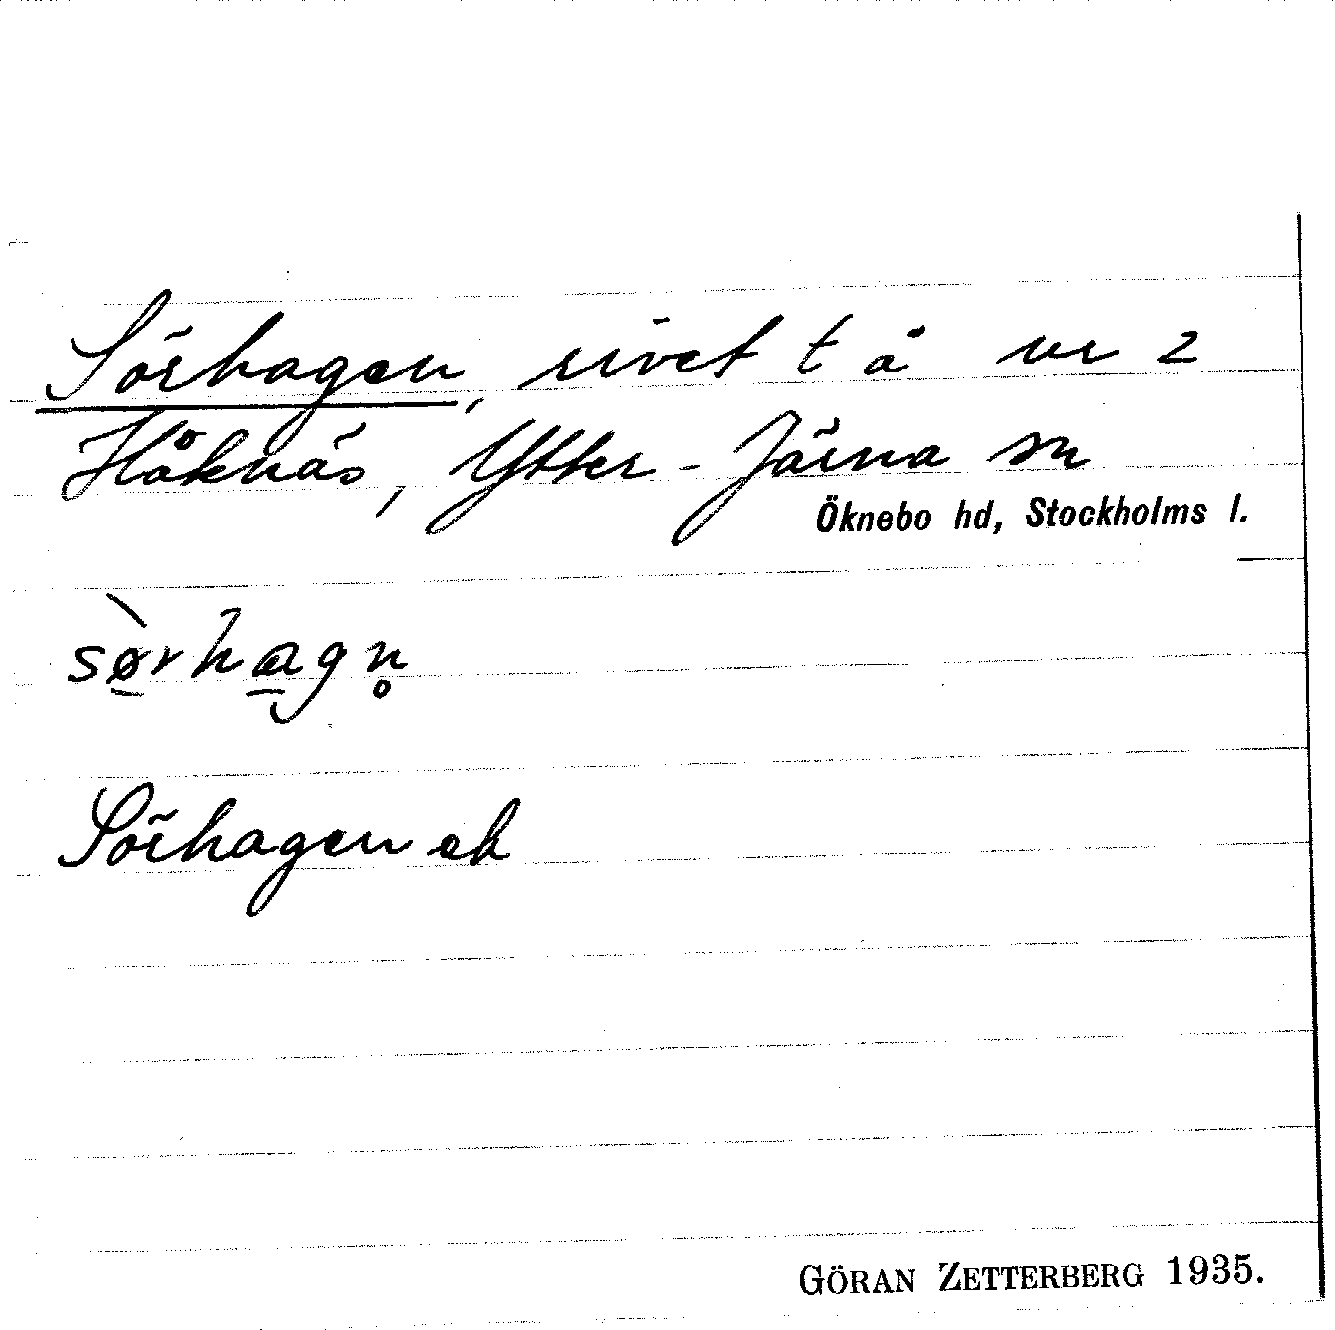 Sörhagen, rivet t å nr 2
Håknäs, Ytter-Järna sn
Öknebo hd, Stockholms l.
sø̀rhagn̥
Sörhagen ek
GÖRAN ZETTERBERG 1935.